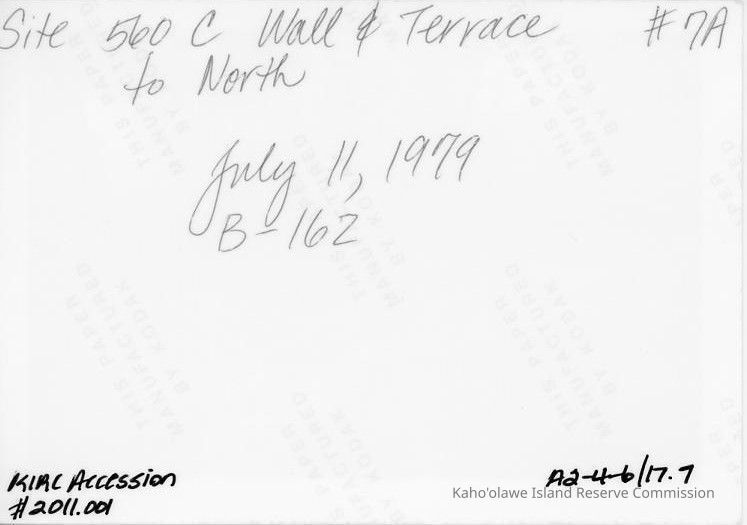 Site 560 C Wall & Terrace #7A
to North
July 11, 1979
B-162
THIS PAPER
MANUFACTURED
BY KODAK
KIRC Accession
#2011.001
A2-4-6/17.7
Kaho'olawe Island Reserve Commission